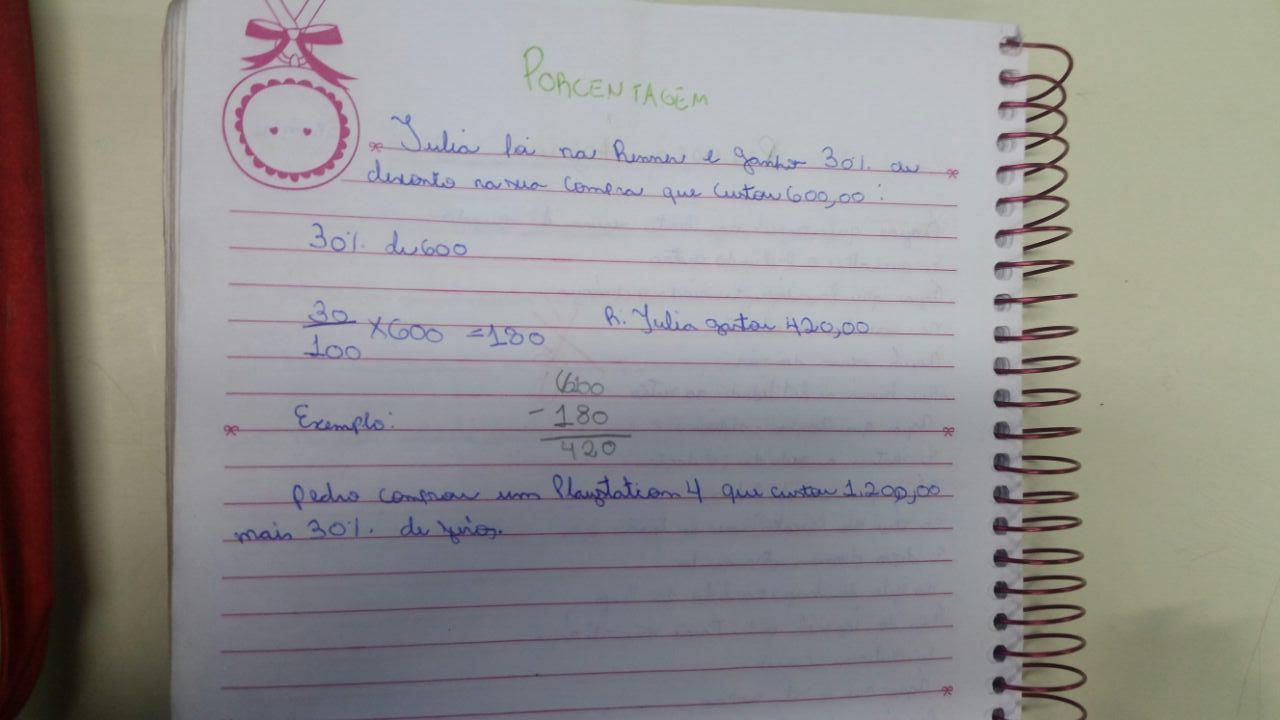 PORCENTAGEM
Julia foi na Renner e ganhor 30% de
desconto na sua compra que custou 600,00:
30% de 600
30
100
×600 =180
R. Julia gastou 420,00
600
Exemplo:
-180
420
Pedro comprou um Playstation 4 que custou 1.200,00
mais 30%. de juros.